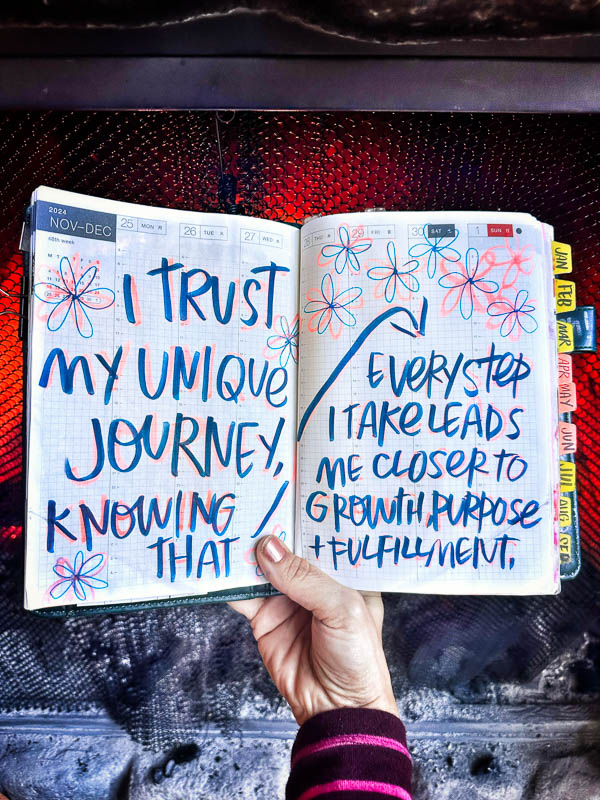 2024
NOV–DEC
48th week
25 MON
26 TUE
27 WED
28 THU
29 FRI
30 SAT
1 SUN
I TRUST
MY UNIQUE
JOURNEY,
KNOWING
THAT
EVERY STEP
I TAKE LEADS
ME CLOSER TO
GROWTH, PURPOSE
+ FULFILLMENT.
JAN
FEB
MAR
APR MAY
JUN
JUL
AUG
SEP